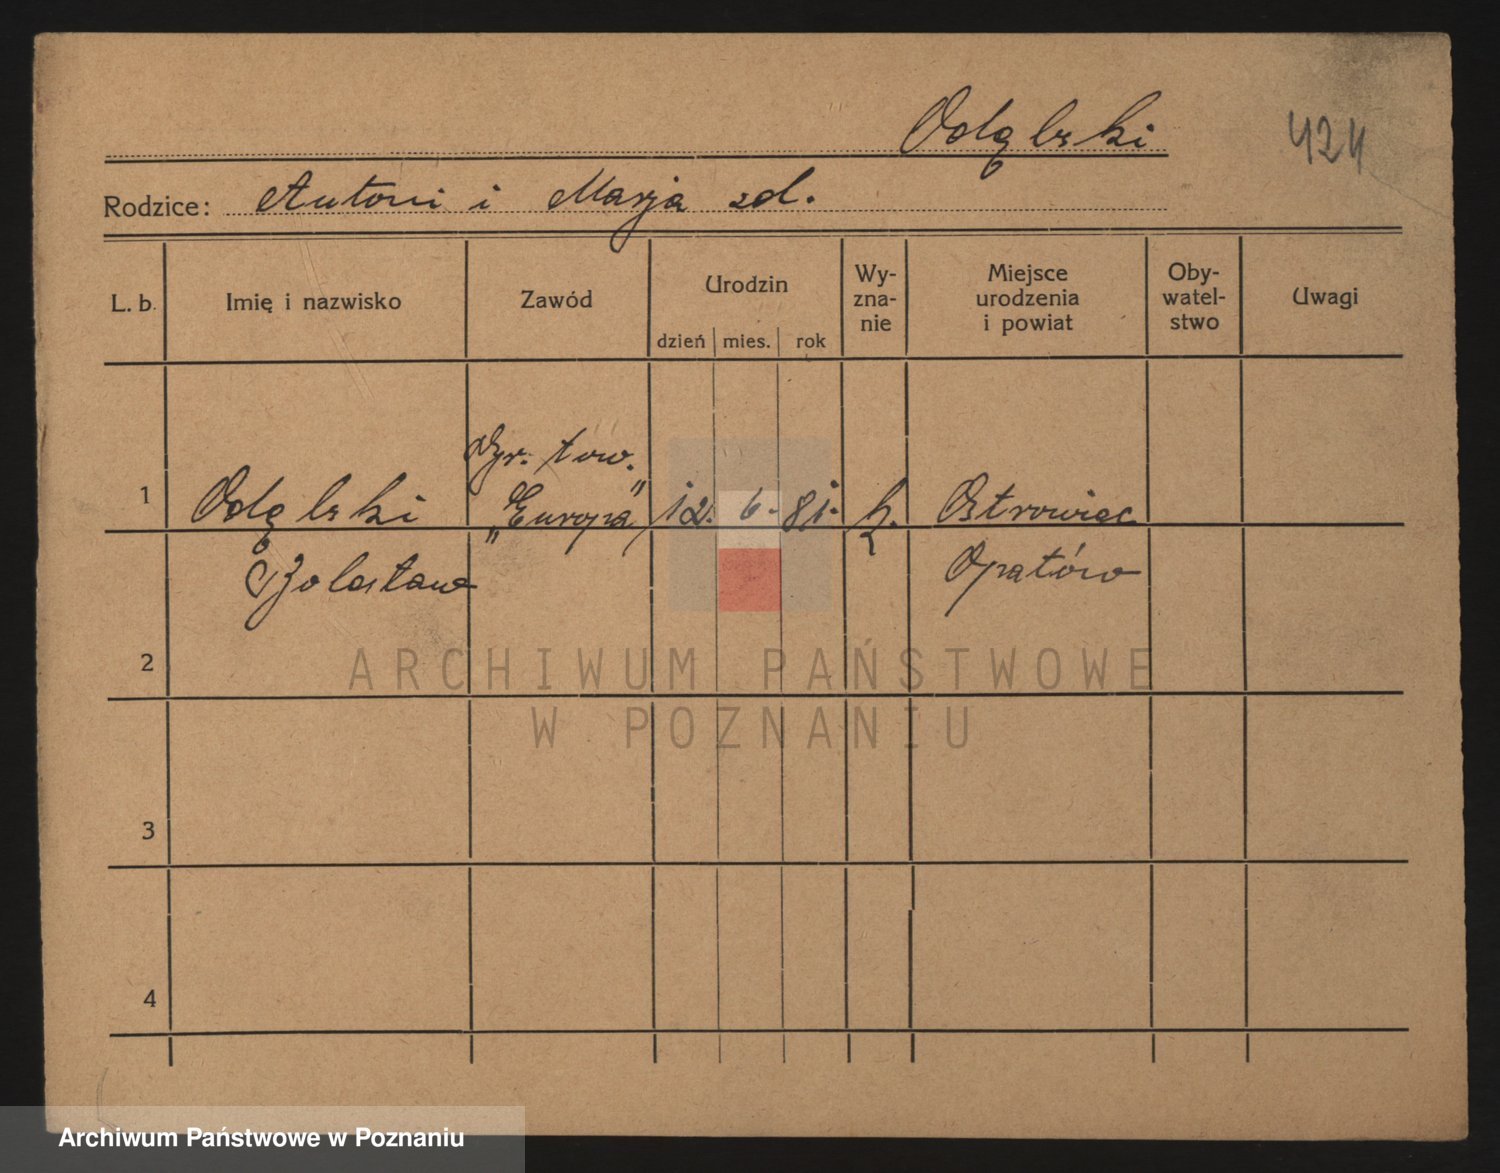 Odąbski
424
Rodzice: Antoni i Marja zd.
L. b.
Imię i nazwisko
Zawód
Urodzin
dzień mies. rok
Wy-
zna-
nie
Miejsce
urodzenia
i powiat
Oby-
watel-
stwo
Uwagi
1
Odąbski
Bolesław
Dyr. tow.
„Europa”
12. 6. 81.
k.
Ostrowiec
Opatów
2
3
4
ARCHIWUM PAŃSTWOWE
W POZNANIU
Archiwum Państwowe w Poznaniu